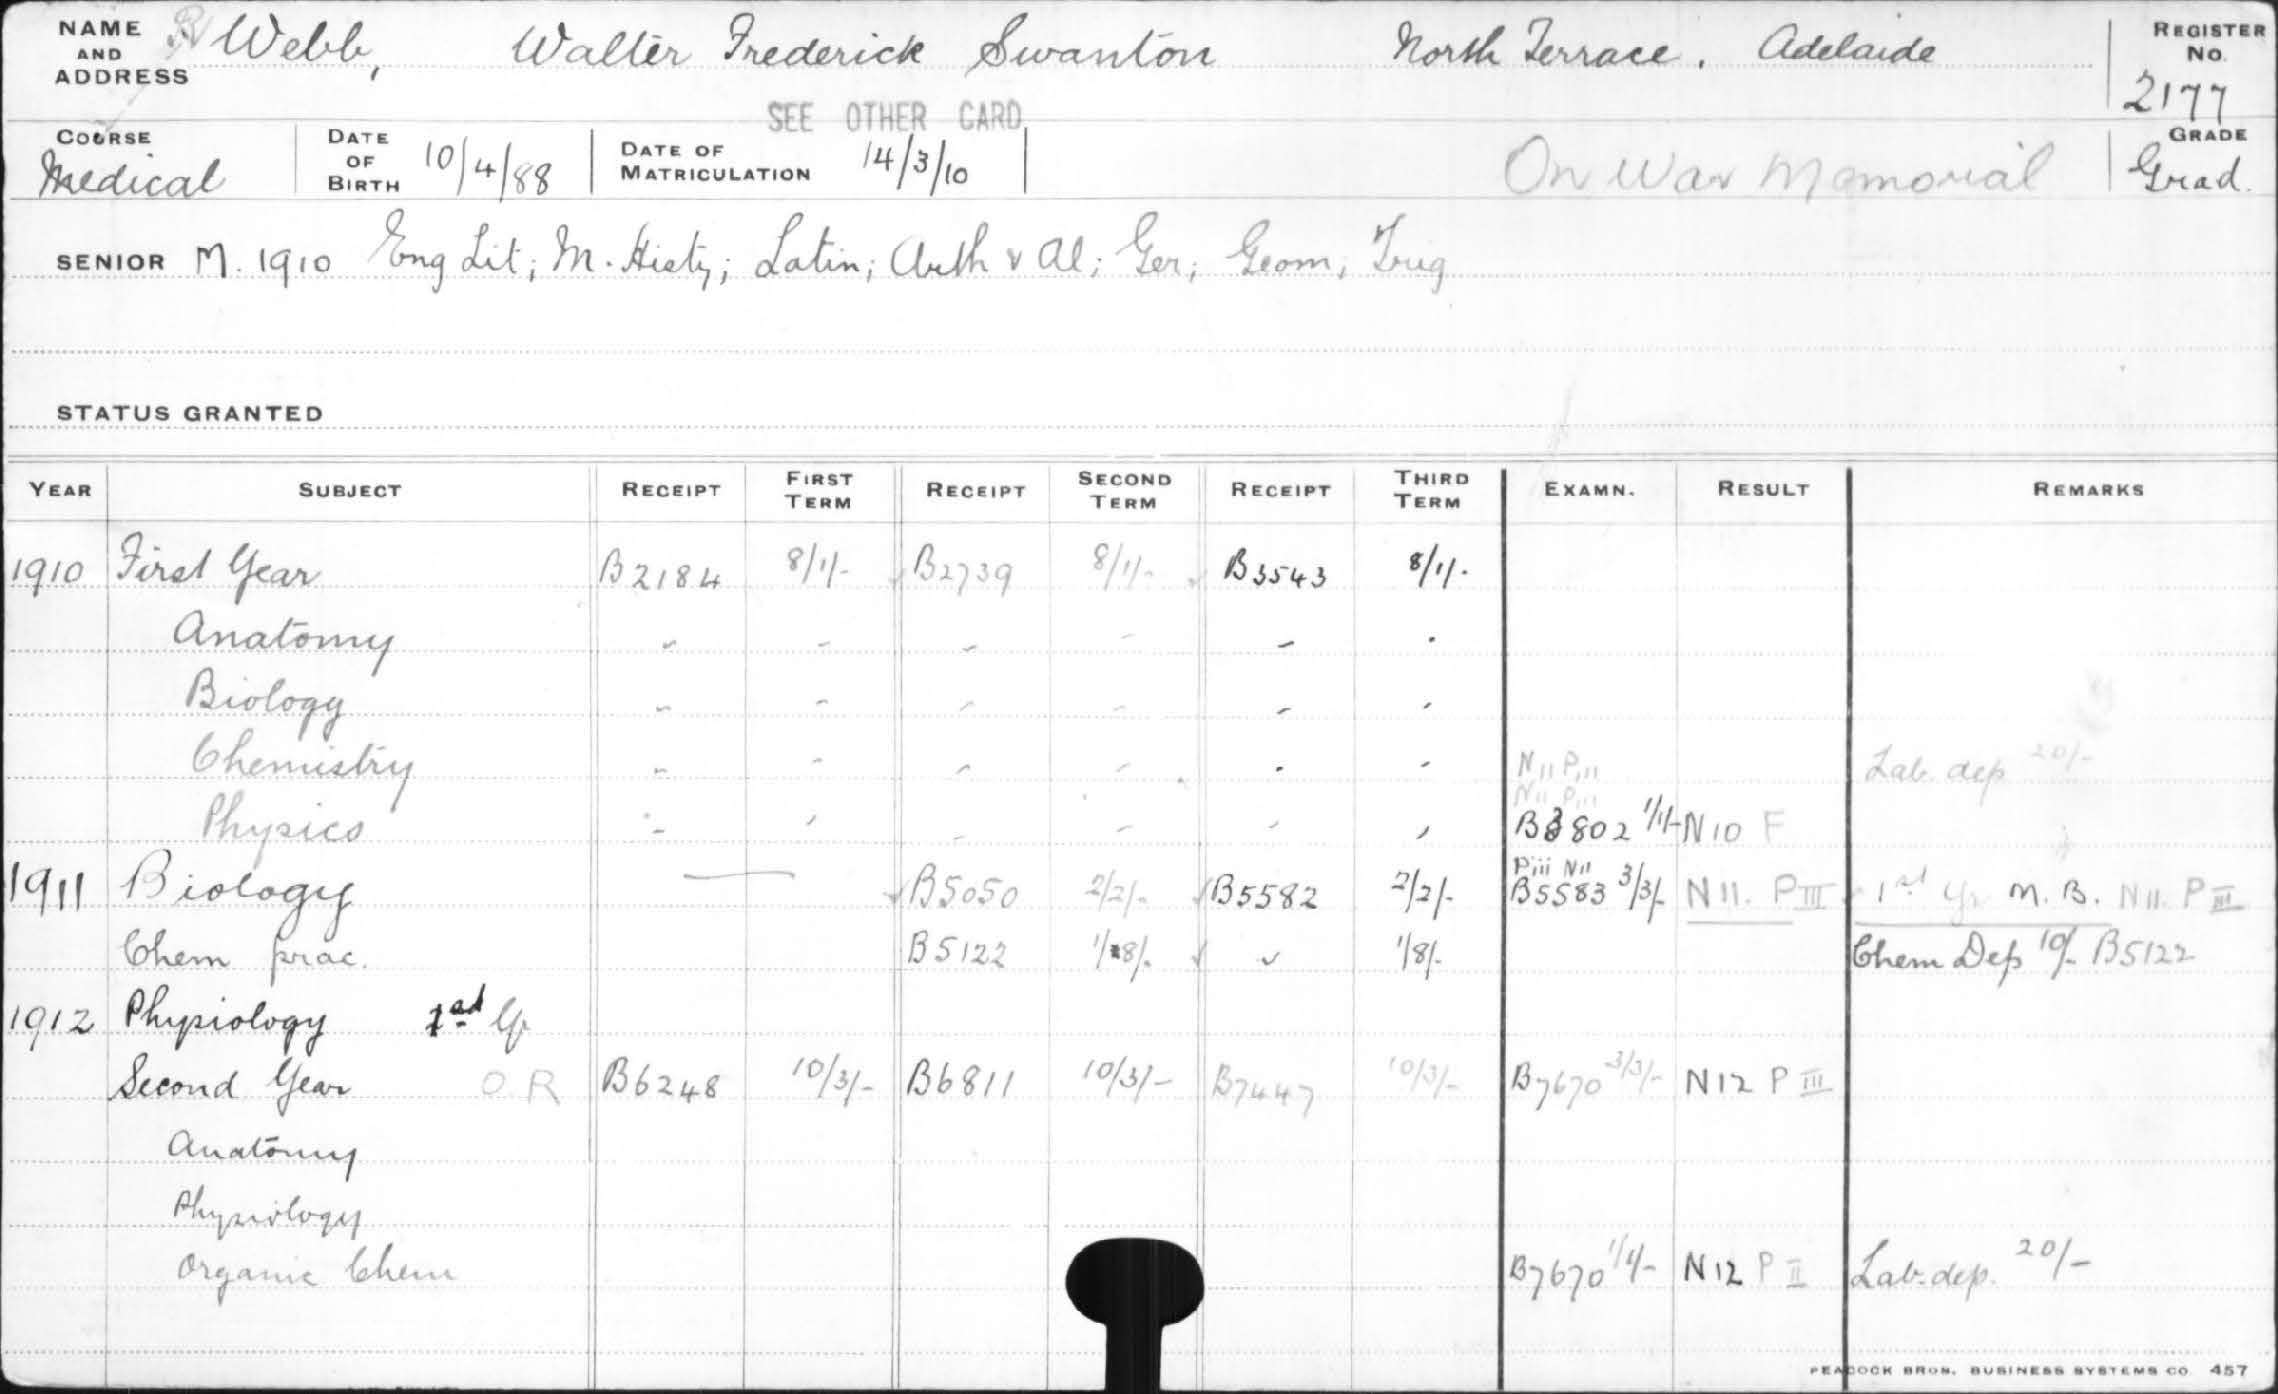 NAME AND ADDRESS Webb, Walter Frederick Swanton North Terrace. Adelaide REGISTER No. 2177
SEE OTHER CARD
COURSE Medical DATE OF BIRTH 10/4/88 DATE OF MATRICULATION 14/3/10 On War Memorial GRADE Grad.
SENIOR M. 1910 Eng Lit; M. Histy; Latin; Arith & Al; Ger; Geom; Trig
STATUS GRANTED
YEAR SUBJECT RECEIPT FIRST TERM RECEIPT SECOND TERM RECEIPT THIRD TERM EXAMN. RESULT REMARKS
1910 First Year B2184 8/1/- B2739 8/1/- B3543 8/1/-
Anatomy
Biology
Chemistry N11 Piii Lab. dep 20/-
N11 Piii
Physics B3802 1/1/- N10 F
Piii N11
1911 Biology B5050 2/2/- B5582 2/2/- B5583 3/3/- N11. PIII 1st Yr M.B. N11. PIII
Chem prac. B5122 1/8/- 1/8/- Chem Dep 10/- B5122
1912 Physiology Yr
Second Year O.R B6248 10/3/- B6811 10/3/- B7447 10/3/- B7670 3/3/- N12 P III
Anatomy
Physiology
Organic Chem B7670 1/1/- N12 P II Lab. dep. 20/-
PEACOCK BROS. BUSINESS SYSTEMS CO 457